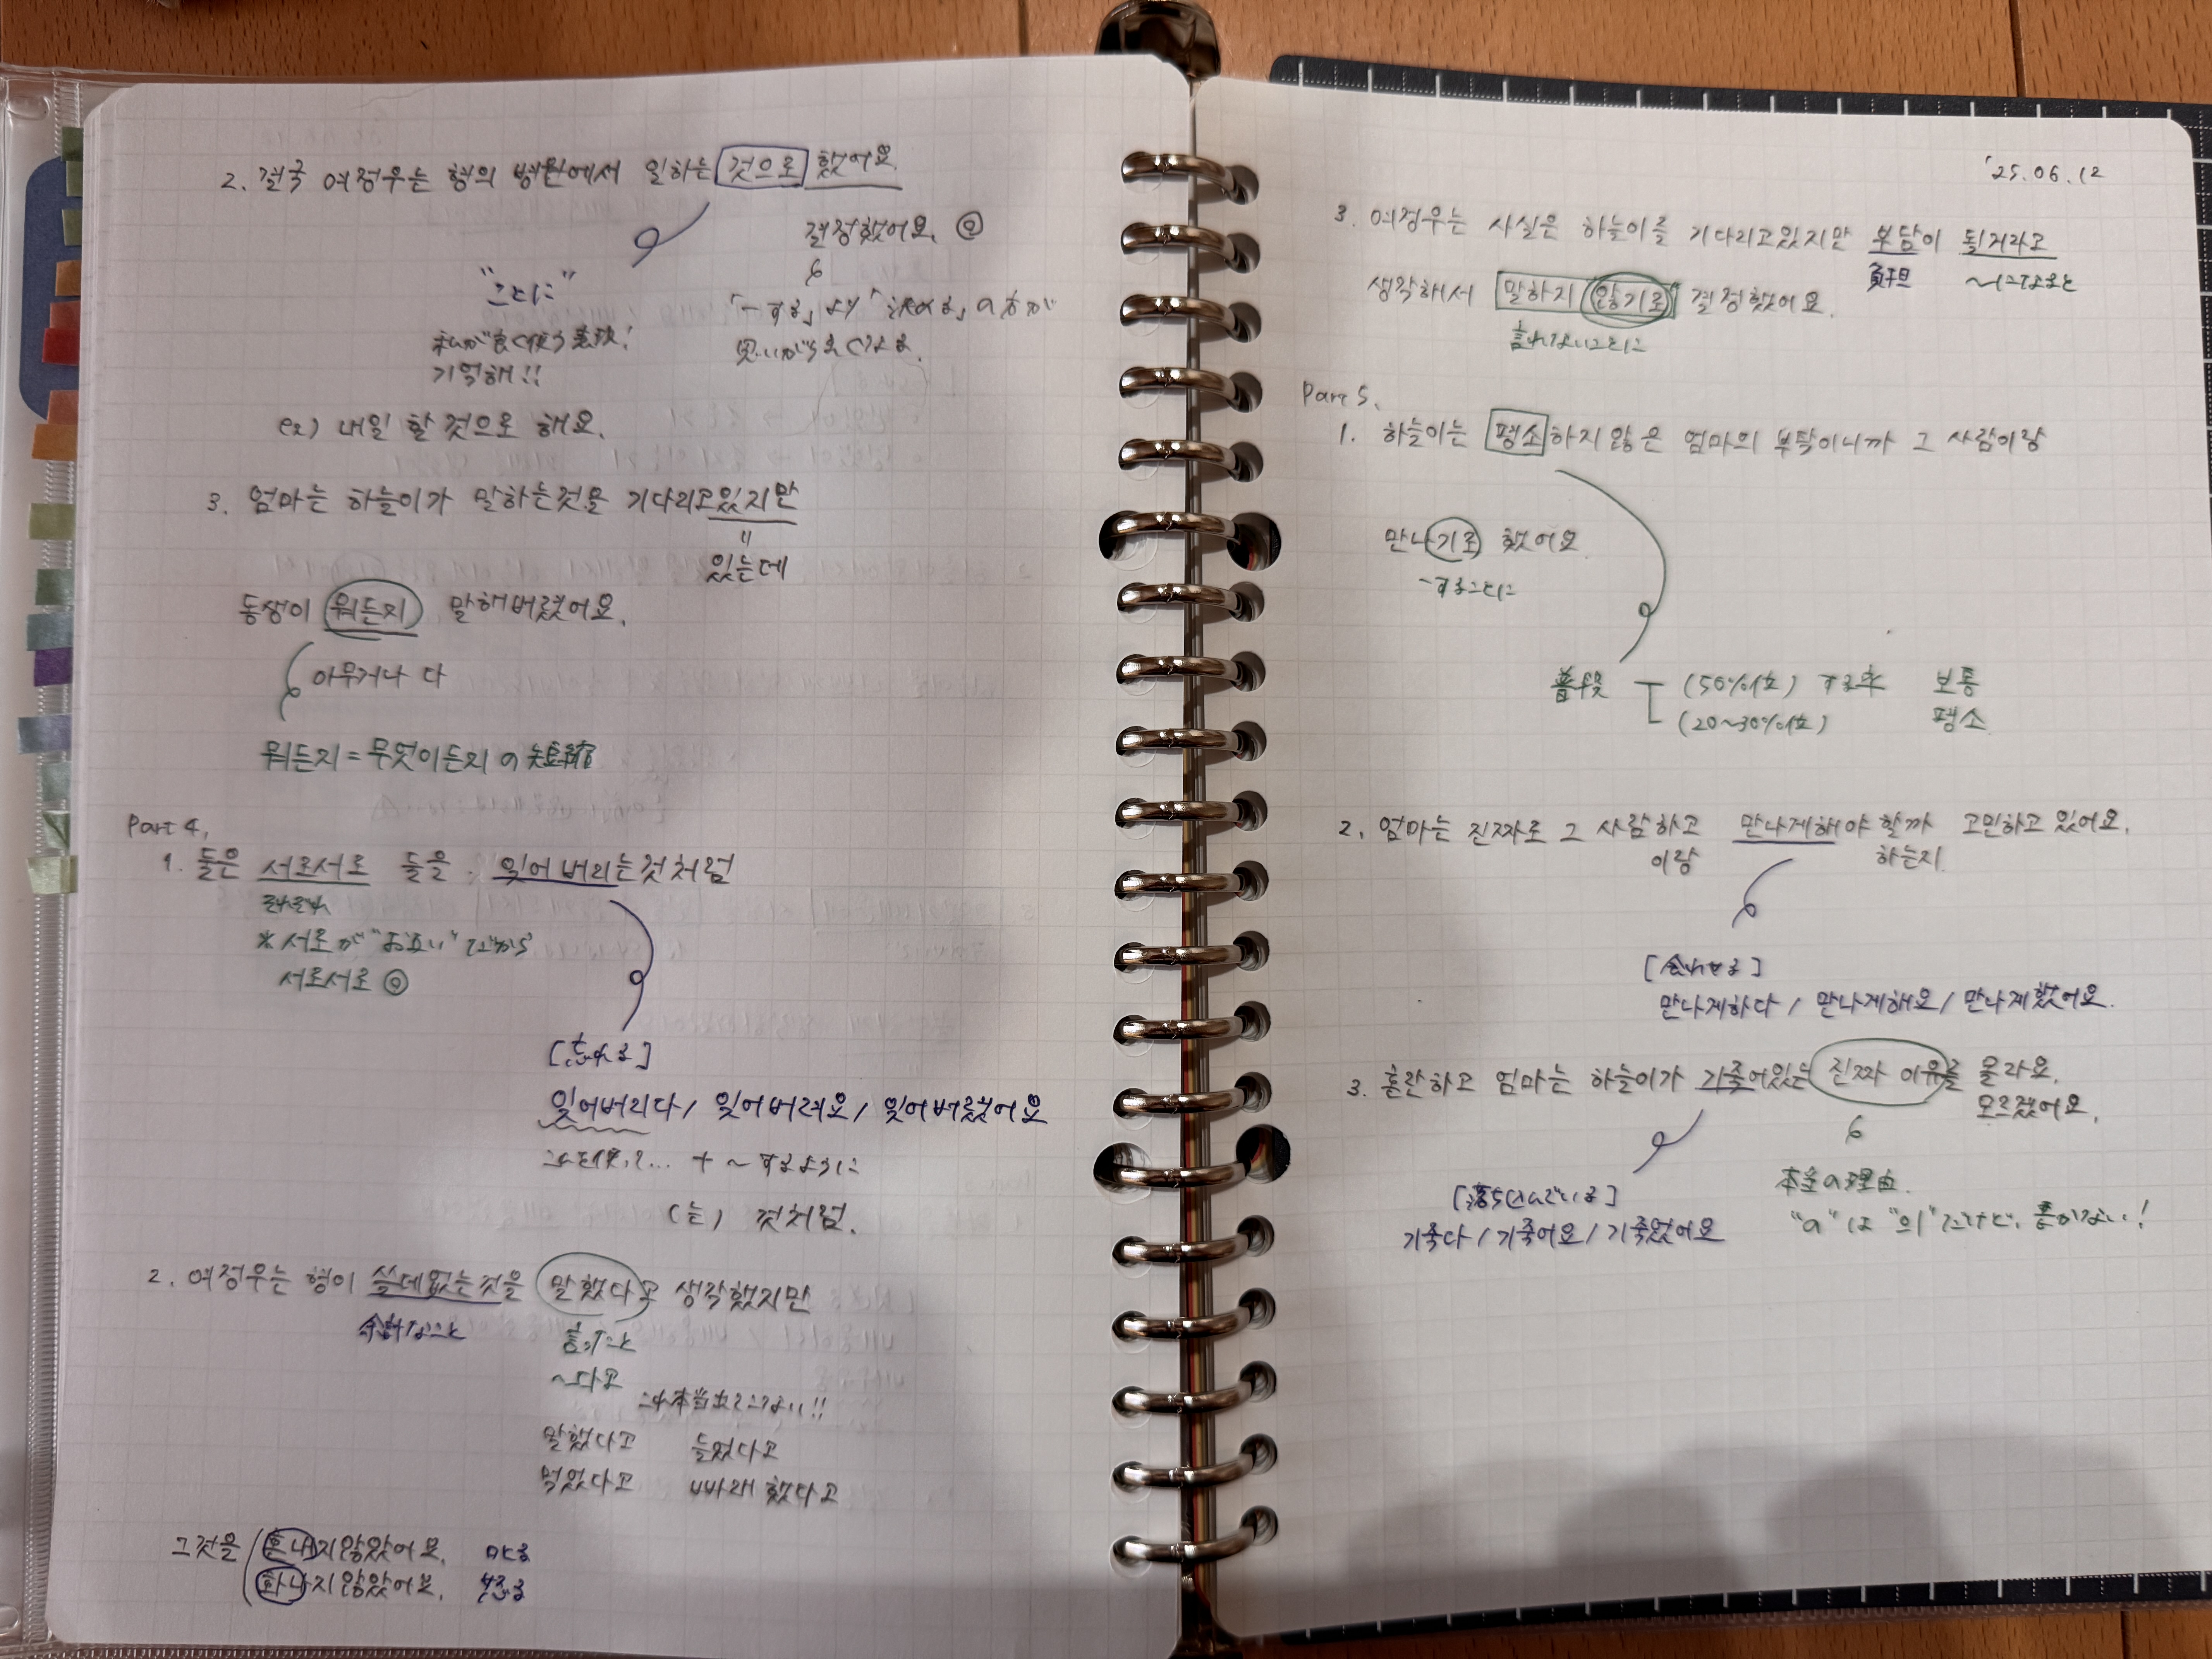 2. 결국 여정우는 형의 병원에서 일하는 것으로 했어요.
결정했어요. ◎
"ことに"
「~する」より「決める」の方が
思いが強くなる。
私が良く使う表現!
기억해!!
ex) 내일 할 것으로 해요.
3. 엄마는 하늘이가 말하는것을 기다리고있지만
=
있는데
동생이 뭐든지 말해버렸어요.
아무거나 다
뭐든지=무엇이든지の短縮
Part 4,
1. 둘은 서로서로 들을 잊어버리는것처럼
それぞれ
※서로が"お互い"だから
서로서로 ◎
[忘れる]
잊어버리다/ 잊어버려요/ 잊어버렸어요
これを使って… + ~するように
(는) 것처럼.
2. 여정우는 형이 쓸데없는것을 말했다고 생각했지만
余計なこと
言ったこと
~다고
これ本当出てこない!!
말했다고 들었다고
먹었다고 빠래했다고
그것을 혼내지않았어요. 叱る
화나지않았어요. 怒る
'25.06.12
3. 여정우는 사실은 하늘이를 기다리고있지만 부담이 될거라고
負担 ~になると
생각해서 말하지 않기로 결정했어요.
言わないことに
Part 5,
1. 하늘이는 평소하지않은 엄마의 부탁이니까 그 사람이랑
만나기로 했어요.
~することに
普段 (50%位) する率 보통
(20~30%位) 평소
2. 엄마는 진짜로 그 사람하고 만나게해야 할까 고민하고 있어요.
이랑 하는지
[会わせる]
만나게하다 / 만나게해요/ 만나게했어요.
3. 혼란하고 엄마는 하늘이가 기죽어있는 진짜 이유를 몰라요.
모르겠어요.
本当の理由.
[落ち込んでいる]
"の"は"의"だけど、書かない!
기죽다 / 기죽어요/ 기죽었어요